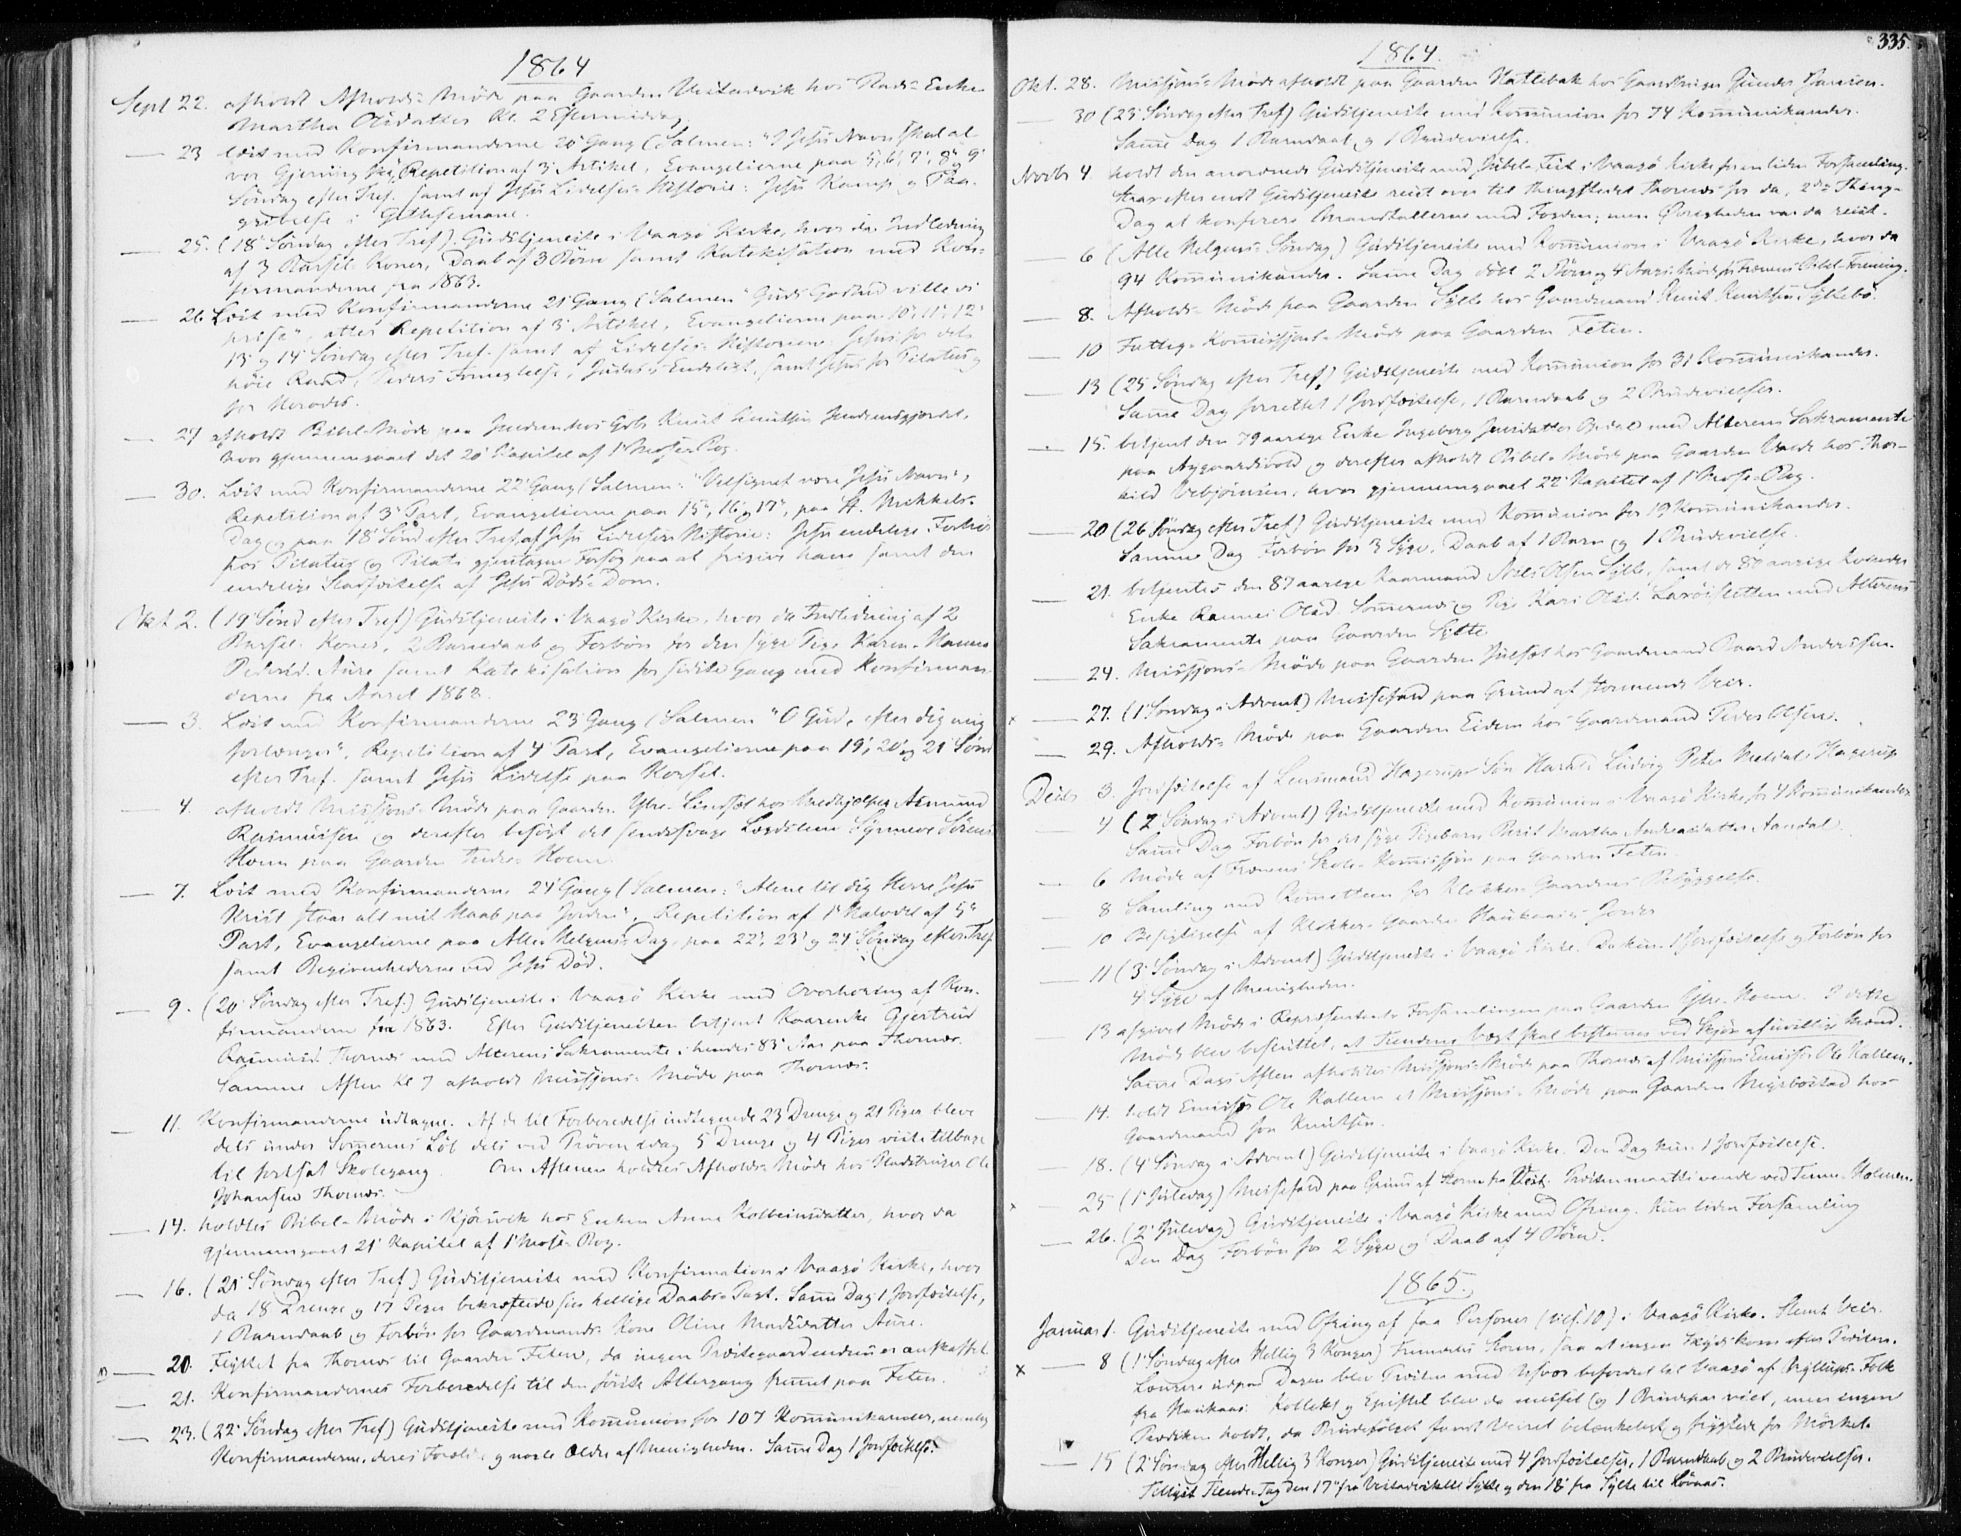 1864
Sept 22. afholdt Afholds-Møde paa Gaarden Vestadvik hos Pads-Enke
Martha Olsdatter Kl. 2 Eftermiddag.
— 23 læst med Konfirmanderne 20' Gang (Salmen: "I Jesu Navn skal al
vor Gjerning ske", Repetition af 3' Artikel, Evangelierne paa 5', 6', 7', 8' og 9'
Søndag efter Tref. samt af Jesu Lidelses-Historie: Jesu Kamp og Paa-
gribelse i Gethsemane.
— 25. (18' Søndag efter Tref) Gudstjeneste i Vaagø Kirke, hvor da Indledning
af 3 Barsel-Koner, Daab af 3 Børn samt Katekisation med Kon-
firmanderne fra 1863.
— 26. Læst med Konfirmanderne 21' Gang (Salmen "Guds Godhed ville vi
prise", atter Repetition af 3' Artikel, Evangelierne paa 10', 11', 12'
13' og 14' Søndag efter Tref. samt af Lidelses-Historien: Jesus for det
høie Raad, Peders Fornegtelse, Judas's Endeligt, samt Jesus for Pilatus og
for Herodes.
— 27 afholdt Bibel-Møde paa hos Gbr. Knut Knutsen
hvor gjennemgaaet det 20' Kapitel af 1' Mose Bog.
— 30. Læst med Konfirmanderne 22' Gang (Salmen: "Velsignet være Jesu Navn",
Repetition af 3' Part, Evangelierne paa 15', 16' og 17', paa St. Mikkels-
Dag og paa 18' Sønd efter Tref, af Jesu Lidelses Historie: Jesu endelige Forhør
hos Pilatus og Pilati gjentagne Forsøg paa at frigive ham samt den
endelige Stadfæstelse af Jesu Døds-Dom.
Okt. 2. (19' Sønd efter Tref) Gudstjeneste i Vaagø Kirke, hvor da Indledning af 2
Barsel-Koner, 2 Barnedaab og Forbøn for den syge Pige Karen-Hanna
Pedersd. Aure samt Katekisation for sidste Gang med Konfirman-
derne fra Aaret 1862.
— 3. Læst med Konfirmanderne 23' Gang (Salmen "O Gud, efter dig mig
forlænges", Repetition af 4' Part, Evangelierne paa 19', 20' og 21' Sønd
efter Tref. samt Jesu Lidelse paa Korset.
— 4. afholdt Missjons-Møde paa Gaarden Ytre-Lindset hos Medhjelper Asmund
Rasmussen og derefter besøgt det sindssvage Lægdslem Synneve Sørens
Horn paa Gaarden Indre-Hoem.
— 7. Læst med Konfirmanderne 24' Gang (Salmen: "Alene til dig Herre Jesu
Krist staar alt mit Haab paa Jorden", Repetition af 1' Halvdel af 5'
Part, Evangelierne paa Alle-Helgens-Dag, paa 22', 23' og 24' Søndag efter Tref
samt Begivenhederne ved Jesu Død.
— 9. (20' Søndag efter Tref.) Gudstjeneste i Vaagø Kirke med Overhøring af Kon-
firmanderne fra 1863. Efter Gudstjenesten betjent Kaarenke Gjertrud
Rasmusd. Thornæs med Alterens Sakramente i hendes 83' Aar paa Thornæs.
Samme Aften Kl 7 afholdt Missjons-Møde paa Thornæs.
— 11. Konfirmanderne udtagne. Af de til Forberedelse indtegnede 23 Drenge og 21 Piger bleve
dels under Sommerens Løb dels ved Prøven idag 5 Drenge og 4 Piger viste tilbage
til fortsat Skolegang. Om Aftenen holdtes Afholds-Møde hos Pladsbruger Ole
Johansen Thornæs.
— 14. holdtes Bibel-Møde i Kjørsvik hos Enken Anne Kolbeinsdatter, hvor da
gjennemgaaet 21' Kapitel af 1' Mose-Bog.
— 16. (21' Søndag efter Tref) Gudstjeneste med Konfirmation i Vaagø Kirke, hvor
da 18 Drenge og 17 Piger bekræftede sin hellige Daabs-Pagt. Samme Dag: 1 Jordfæstelse,
1 Barnedaab og Forbøn for Gaardmands-Kone Oline Madsdatter Aure.
— 20. Flyttet fra Thornæs til Gaarden Feten, da ingen Præstegaard endnu er anskaffet.
— 21. Konfirmandernes Forberedelse til den første Altergang fremmet paa Feten.
— 23. (22' Søndag efter Tref) Gudstjeneste med Kommunion for 107 Kommunikanter, nemlig
Konfirmanderne, deres Forældre og nogle Ældre af Menigheden. Samme Dag 1 Jordfæstelse.
335.
1864.
Okt. 28. Missjons-Møde afholdt paa Gaarden Hatlebak hos Gaardbruger Gunder Jansen.
— 30 (23' Søndag efter Tref) Gudstjeneste med Kommunion for 74 Kommunikanter.
Samme Dag 1 Barnedaab og 1 Brudevielse.
Novbr 4. holdt den anordnede Gudstjeneste med Jubel-Fest i Vaagø Kirke for en liden Forsamling.
Strax efter endt Gudstjeneste reist over til Thingstedet Thornæs for da, 2den Thing-
Dag at konferere Mandtallerne med Fogden; men Øvrigheden var da reist.
— 6 (Alle Helgens-Søndag) Gudstjeneste med Kommunion i Vaagø Kirke, hvor da
94 Kommunikanter. Samme Dag døbt 2 Børn og 4' Aars Møde for Frænens Bibel-Forening.
— 8. Afholds-Møde paa Gaarden Sylte hos Gaardmand Knut Knutsen Syltebø.
— 10 Fattig-Kommissjons-Møde paa Gaarden Feten.
— 13 (25 Søndag efter Tref) Gudstjeneste med Kommunion for 31 Kommunikanter.
Samme Dag forrettet 1 Jordfæstelse, 1 Barnedaab og 2 Brudevielser.
— 15. betjent den 79 aarige Enke Ingeborg Jensdatter med Alterens Sakramente
paa Nygaardsvold og derefter afholdt Bibel-Møde paa Gaarden hos Thor-
kild Vebjørnsen, hvor gjennemgaaet 22' Kapitel af 1' Mose-Bog.
— 20 (26 Søndag efter Tref) Gudstjeneste med Kommunion for 19 Kommunikanter.
Samme Dag Forbøn for 3 Syge, Daab af 1 Barn og 1 Brudevielse.
— 21. betjentes den 87 aarige Kaarmand Nils Olsen Sylte, samt de 80 aarige Kvinder
Enke Rannei Olsd. Sommernes og Pige Kari Olsd. Larøisletten med Alterens
Sakramente paa Gaarden Sylte
— 24. Missjons-Møde paa Gaarden Julset hos Gaardmand Baard Anderssen.
x — 27. (1' Søndag i Advent) Messefald paa Grund af stormende Veir.
— 29. Afholds-Møde paa Gaarden Eidem hos Gaardmand Peder Olsen.
Decbr 3. Jordfæstelse af Lensmand Hagerups Søn Harald Ludvig Peter Hagerup
4 (2 Søndag i Advent) Gudstjeneste med Kommunion i Vaagø Kirke for 4 Kommunikanter
Samme Dag Forbøn for det syge Pigebarn Berit Martha Andreasdatter Aandal.
— 6 Møde af Frænens Skole-Kommissjon paa Gaarden Feten.
— 8 Samling med Komitteen for Klokker-Gaardens Bebyggelse.
— 10 Besigtigelse af Klokker-Gaarden Haukaas's Jorder
— 11 (3' Søndag i Advent) Gudstjeneste i Vaagø Kirke. Da kun 1 Jordfæstelse og Forbøn for
4 Syge af Menigheden.
— 13 afgivet Møde i Repræsentant-Forsamlingen paa Gaarden Ytre-Hoem. I dette
Møde blev besluttet, at Tiendens Vægt skal bestemmes ved Skjøn af uvillige Mænd.
Samme Dags Aften afholdtes Missjons-Møde paa Thornæs af Missjons-Emissær Ole Kallem.
— 14. holdt Emissær Ole Kallem et Missjons-Møde paa Gaarden Myrbostad hos
Gaardmand Jon Knutsen.
18. (4' Søndag i Advent) Gudstjeneste i Vaagø Kirke. Den Dag kun 1 Jordfæstelse.
x — 25 (1' Juledag) Messefald paa Grund af Storm fra Vest. Præsten maatte vende ved Tinn-Holmen.
— 26. (2' Juledag) Gudstjeneste i Vaagø Kirke med Ofring. Kun liden Forsamling
Den Dag Forbøn for 2 Syge og Daab af 4 Børn.
1865.
Januar 1. Gudstjeneste med Ofring af faa Personer (vel 10) i Vaagø Kirke. Slemt Veir.
x — 8 (1' Søndag efter Hellig 3 Konger) Storm, saa at ingen Skyds kom efter Præsten.
Længere udpaa Dagen blev Præsten med Nød befordret til Vaagø af Bryllups-Folk
fra Haukaas. Kollekt og Epistel blev da messet og 1 Brudepar viet, men ingen
Prædiken holdt, da Brudefølget fandt Veiret betænkeligt og frygtede for Mørket.
— 15 (2' Søndag efter Hellig 3 Konger) Gudstjeneste med 4 Jordfæstelser, 1 Barnedaab og 2 Brudevielser.
Tillyst Tiende-Tag den 17' fra til Sylte og den 18' fra Sylte til